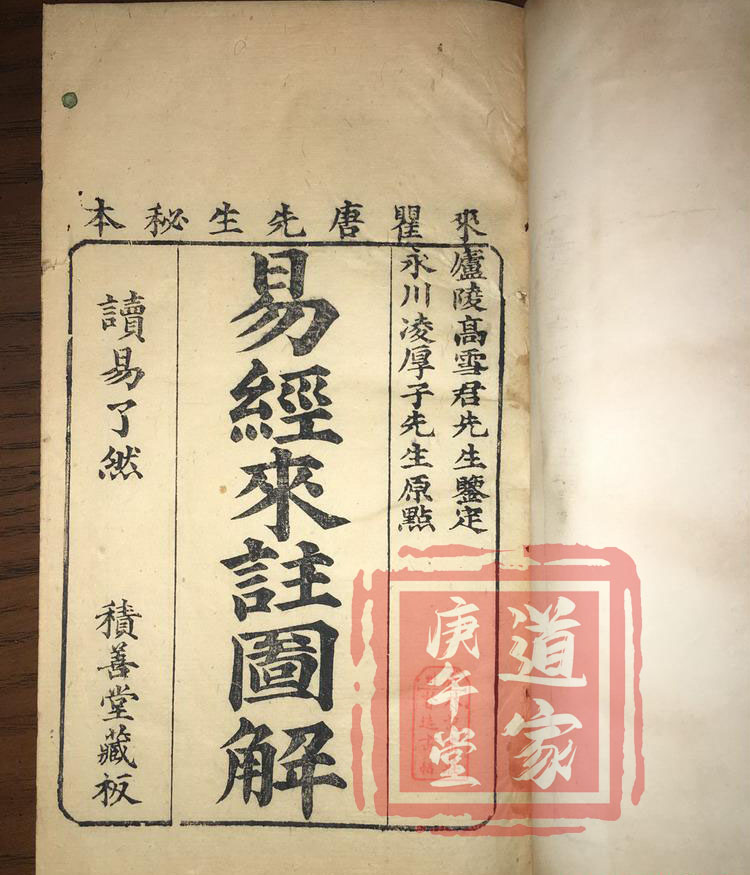 來瞿唐先生秘本
廬陵高雪君先生鑒定
永川凌厚子先生原點
易經來註圖解
讀易了然
積善堂藏板
道家
庚午堂